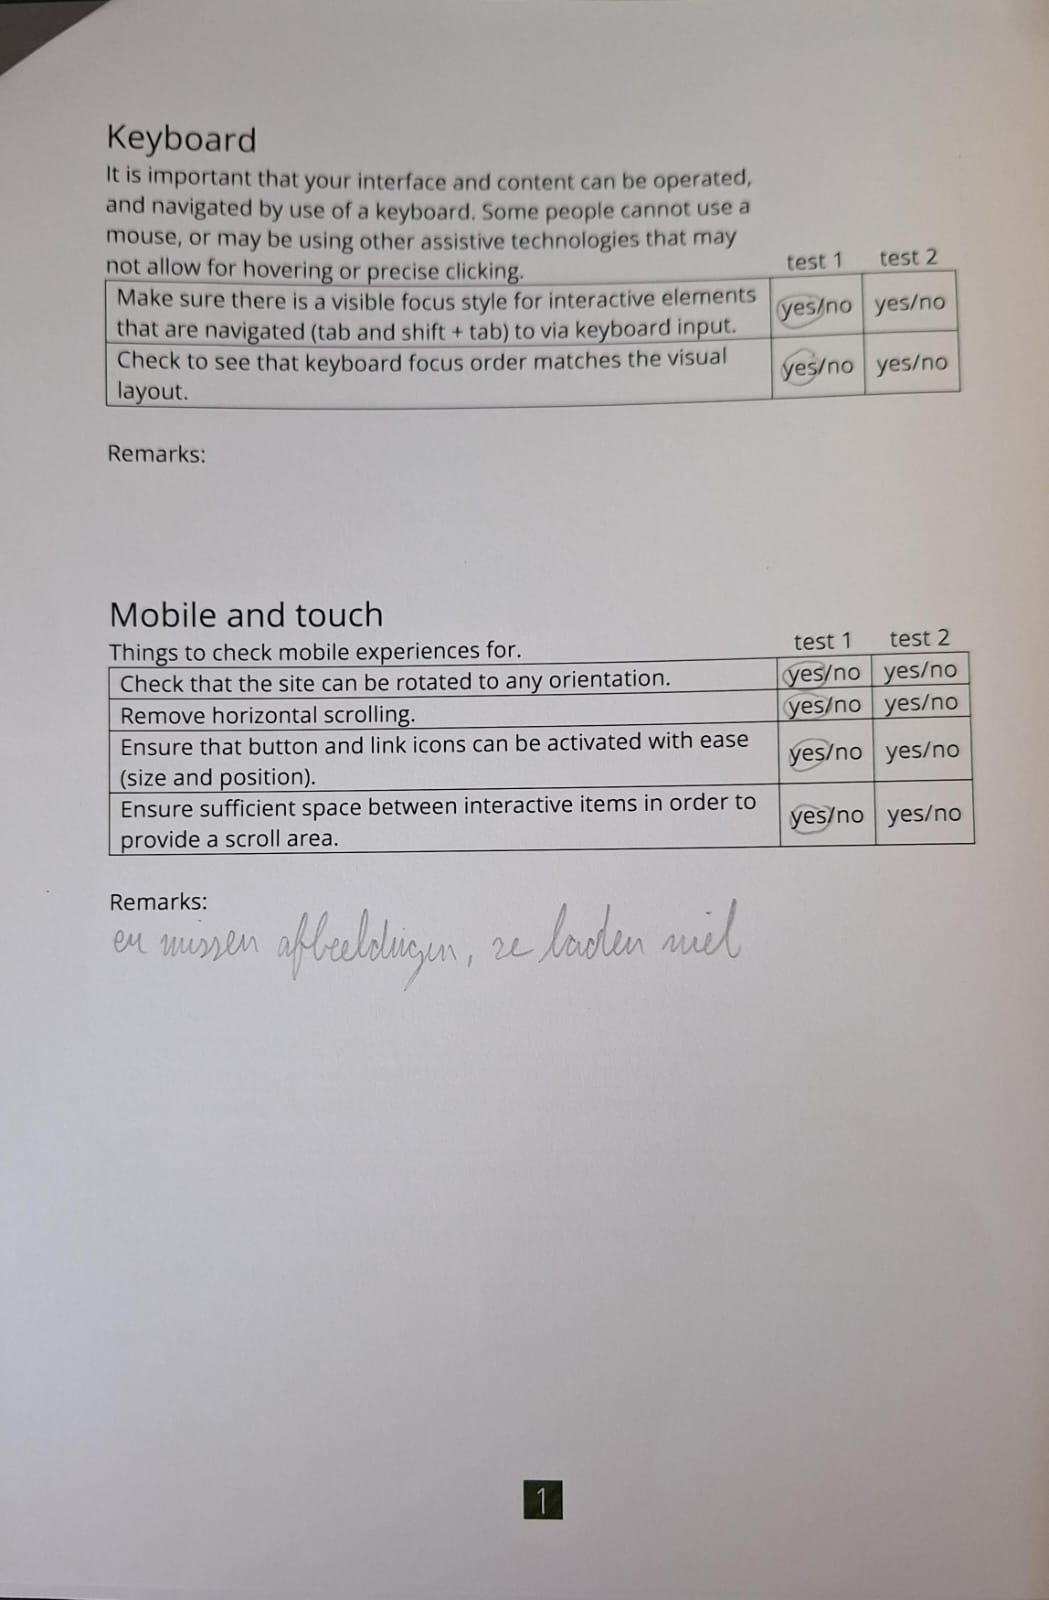 Keyboard
It is important that your interface and content can be operated,
and navigated by use of a keyboard. Some people cannot use a
mouse, or may be using other assistive technologies that may
not allow for hovering or precise clicking.
test 1 test 2
Make sure there is a visible focus style for interactive elements
that are navigated (tab and shift + tab) to via keyboard input.
yes/no yes/no
Check to see that keyboard focus order matches the visual
layout.
yes/no yes/no
Remarks:
Mobile and touch
Things to check mobile experiences for.
test 1 test 2
Check that the site can be rotated to any orientation. yes/no yes/no
Remove horizontal scrolling. yes/no yes/no
Ensure that button and link icons can be activated with ease
(size and position).
yes/no yes/no
Ensure sufficient space between interactive items in order to
provide a scroll area.
yes/no yes/no
Remarks:
er missen afbeeldingen, ze laden niet
1